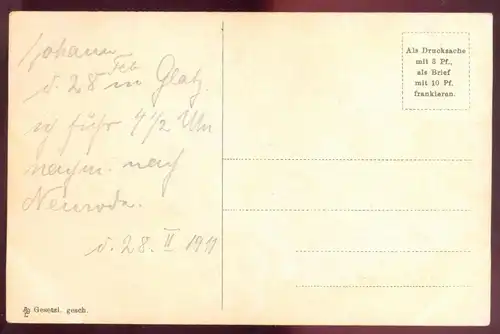 Johann
d. 28 Feb in Glatz.
ich fuhr 4 1/2 Uhr
nachm. nach
Neurode.
d. 28. II 1911
Als Drucksache
mit 3 Pf.,
als Brief
mit 10 Pf.
frankieren.
Gesetzl. gesch.